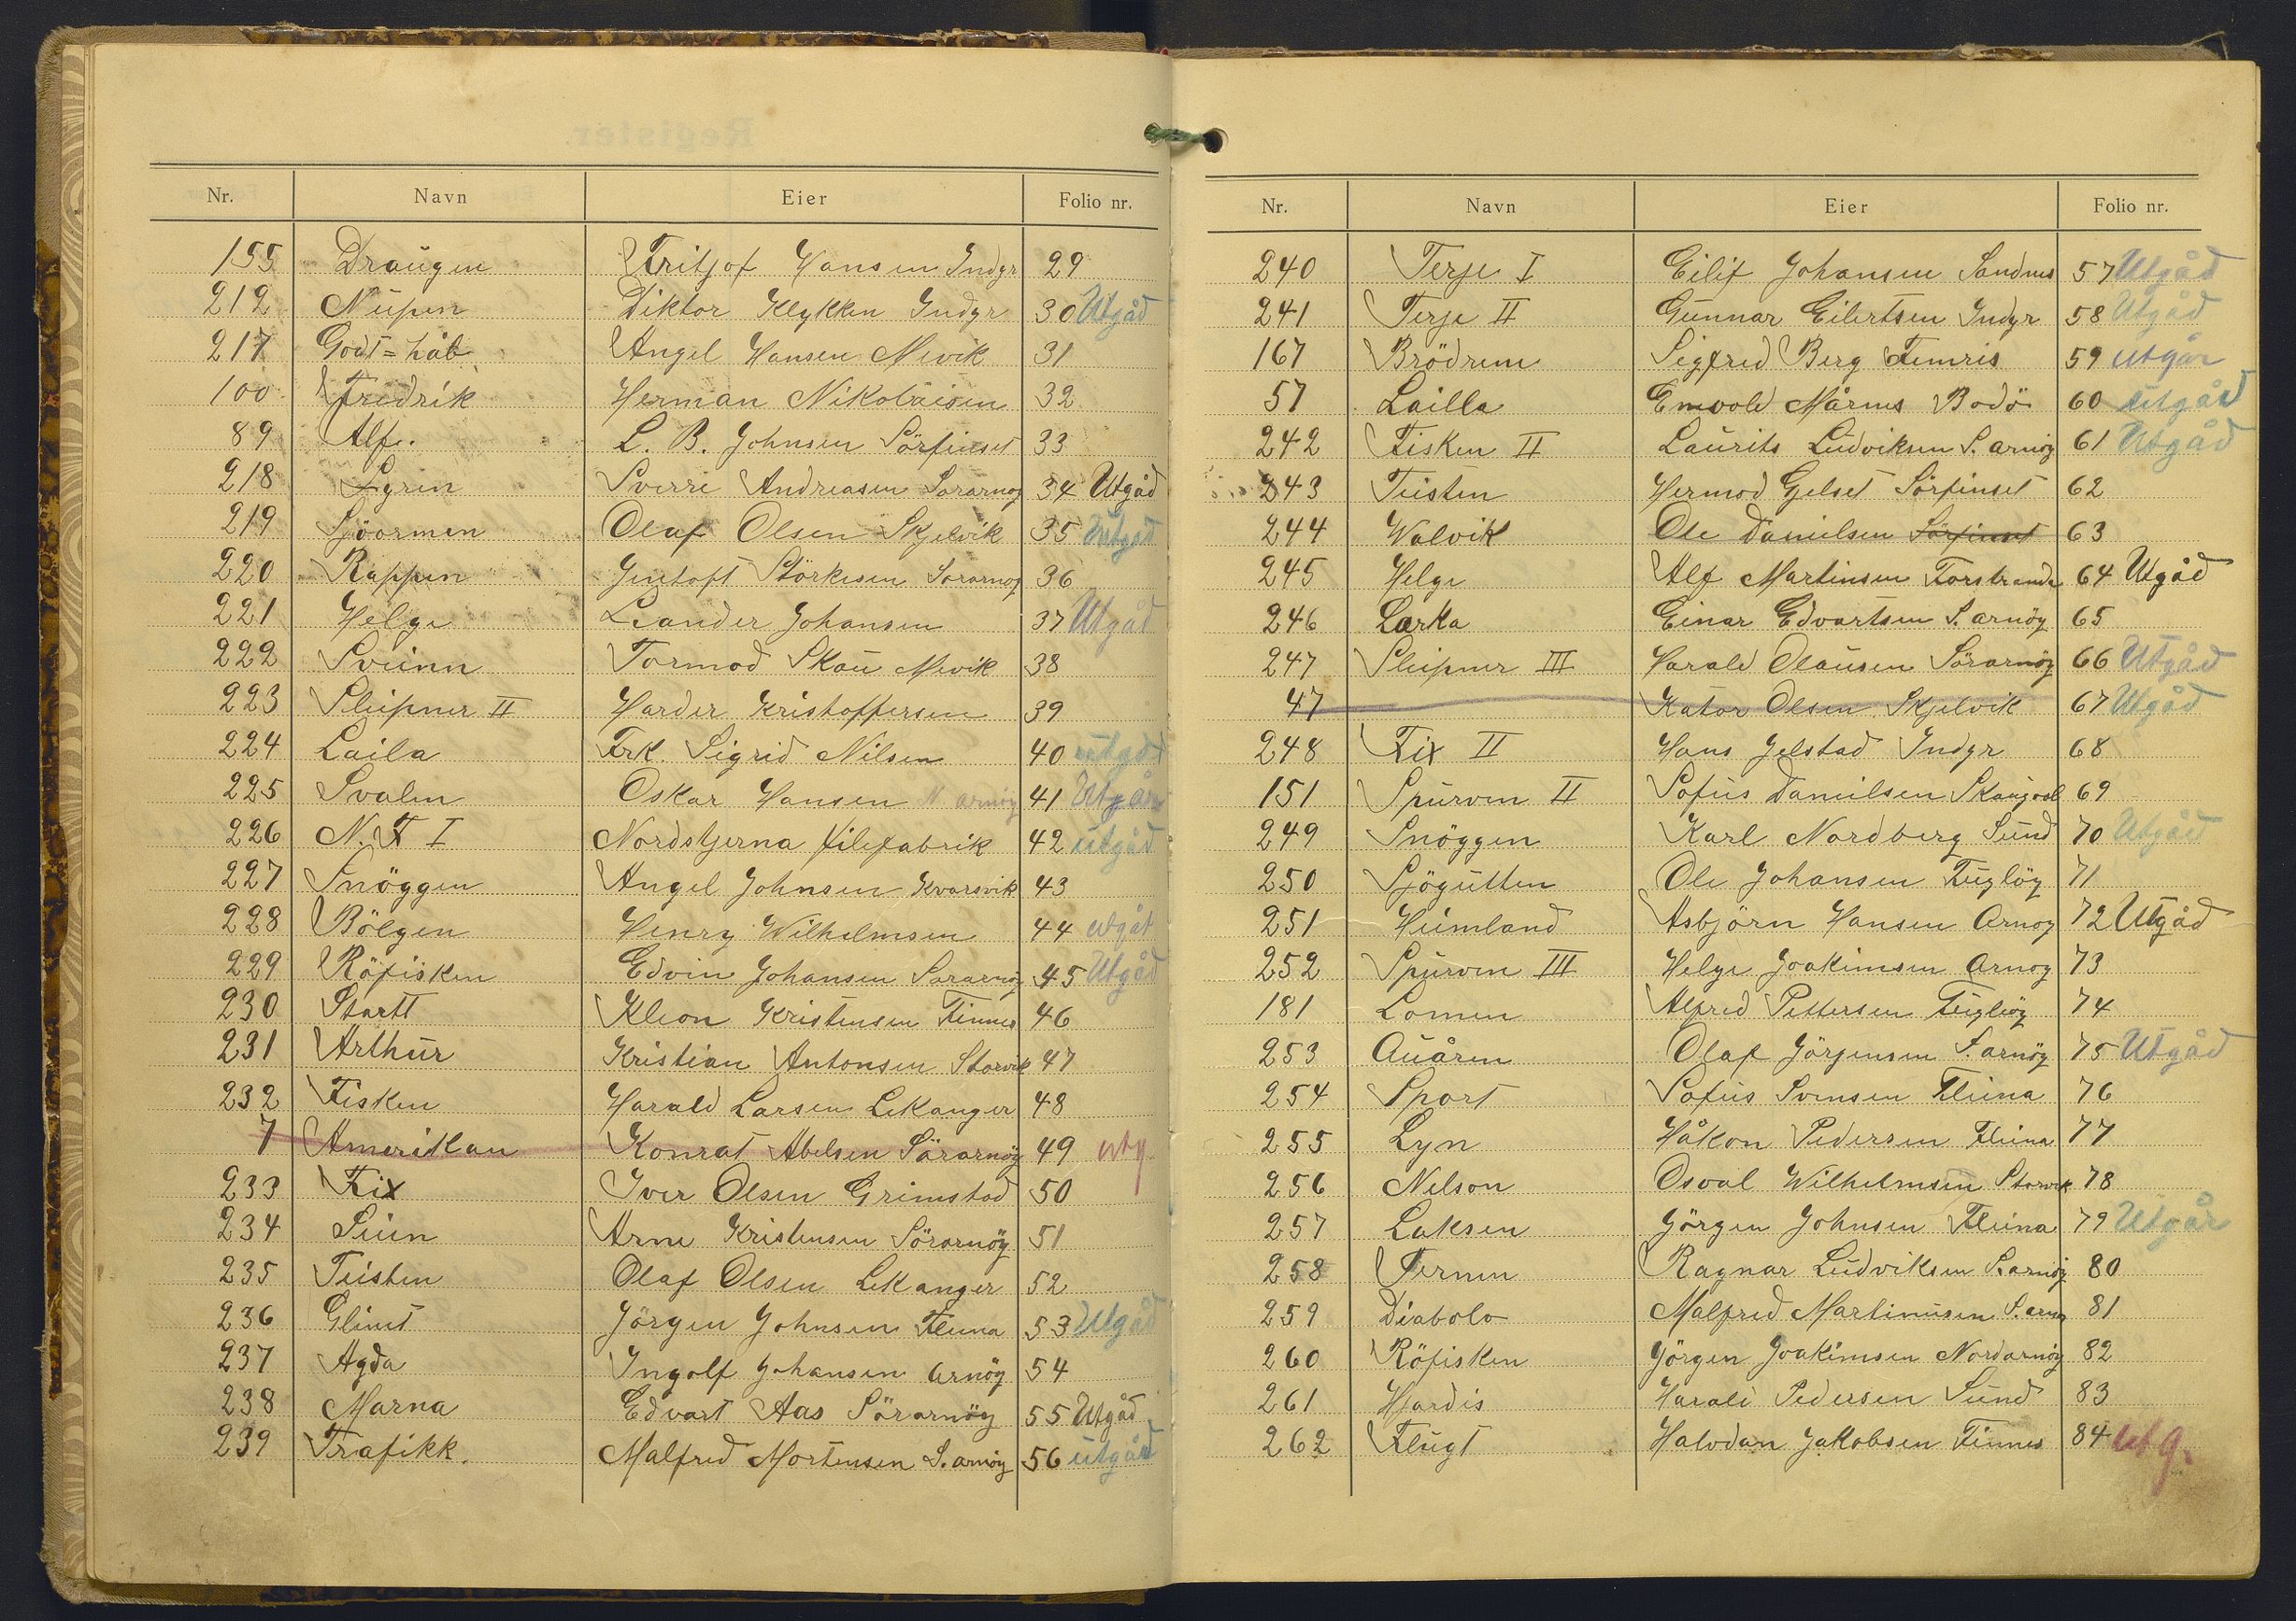 Nr. Navn Eier Folio nr.
155 Draugen Fritjof Hansen Indyr 29
212 Nupen Viktor Klykken Indyr 30 Utgåd
217 Godt=håb Angel Hansen Mevik 31
100 Fredrik Herman Nikolaisen 32
89 Alf. L. B. Johnsen Sörfinset 33
218 Lyrin Sverre Andreasen Sørarnøy 34 Utgåd
219 Sjöormen Olaf Olsen Skjelvik 35 Utgåd
220 Rappen Störkesen Sørarnøy 36
221 Helge Leander Johansen 37 Utgåd
222 Sveinn Tormod Skau Mevik 38
223 Sleipner II Harder Kristoffersen 39
224 Laila Frk. Sigrid Nilsen 40 utgåt
225 Svalen Oskar Hansen N. arnöy 41 Utgår
226 N. F I Nordstjerna filefabrik 42 utgåd
227 Snöggen Angel Johnsen Kvarsvik 43
228 Bölgen Henry Wilhelmsen 44 utgåt
229 Röfisken Edvin Johansen Sørarnøy 45 Utgåd
230 Startt Kleon Kristensen Finnes 46
231 Arthur Kristian Antonsen Storvik 47
232 Fisken Harald Larsen Lekanger 48
7 Amerikan Konrat Abelsen Sörarnöy 49 utg.
233 Fix Iver Olsen Grimstad 50
234 Seien Arne Kristensen Sörarnöy 51
235 Teisten Olaf Olsen Lekanger 52
236 Glimt Jörgen Johnsen Fleina 53 Utgåd
237 Agda Ingolf Johansen Arnöy 54
238 Marna Edvart Aas Sörarnöy 55 Utgåd
239 Trafikk. Malfred Mortensen S. arnöy 56 utgåd
Nr. Navn Eier Folio nr.
240 Terje I Eilif Johansen Sandnes 57 Utgåd
241 Terje II Gunnar Eilertsen Indyr 58 Utgåd
167 Brödrene Sigfred Berg Femris 59 utgår
57 Lailla Mårnes Bodö 60 utgåd
242 Fisken II Laurits Ludviksen S. arnöy 61 Utgåd
243 Teisten Hermod Gjelset Sörfinset 62
244 Walvik Ole Danielsen Sörfinset 63
245 Helge Alf Martinsen Forstranda 64 Utgåd
246 Larka Einar Edvartsen S. arnöy 65
247 Sleipner III Harald Olausen Sörarnöy 66 Utgåd
47 Kator Olsen Skjelvik 67 Utgåd
248 Fix II Hans Jelstad Indyr 68
151 Spurven II Sofus Danielsen 69
249 Snöggen Karl Nordberg Sund 70 Utgåd
250 Sjögutten Ole Johansen Fuglöy 71
251 Heimland Asbjörn Hansen Arnoy 72 Utgåd
252 Spurven III Helge Joakimsen Arnoy 73
181 Lomen Alfred Pettersen Fuglöy 74
253 Auåren Olaf Jörgensen S. arnöy 75 Utgåd
254 Sport Sofus Svensen Fleina 76
255 Lyn Håkon Pedersen Fleina 77
256 Nelson Osval Wilhelmsen Storvik 78
257 Laksen Jörgen Johnsen Fleina 79 Utgår
258 Ternen Ragnar Ludviksen S. arnöy 80
259 Diabolo Malfred Martinusen S. arnöy 81
260 Röfisken Jörgen Joakimsen Nordarnöy 82
261 Hjardis Harald Pedersen Sund 83
262 Flugt Halvdan Jakobsen Finnes 84 utg.